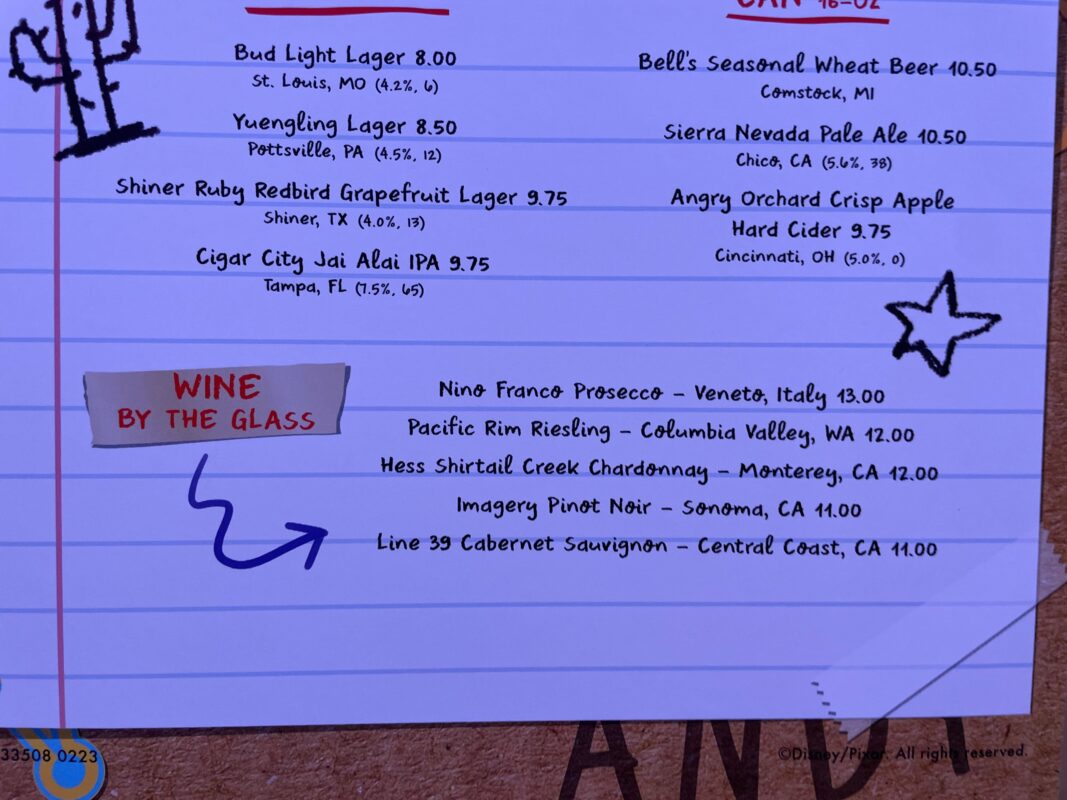 CAN 16-OZ
Bud Light Lager 8.00
St. Louis, MO (4.2%, 6)
Yuengling Lager 8.50
Pottsville, PA (4.5%, 12)
Shiner Ruby Redbird Grapefruit Lager 9.75
Shiner, TX (4.0%, 13)
Cigar City Jai Alai IPA 9.75
Tampa, FL (7.5%, 65)
Bell's Seasonal Wheat Beer 10.50
Comstock, MI
Sierra Nevada Pale Ale 10.50
Chico, CA (5.6%, 38)
Angry Orchard Crisp Apple
Hard Cider 9.75
Cincinnati, OH (5.0%, 0)
WINE
BY THE GLASS
Nino Franco Prosecco – Veneto, Italy 13.00
Pacific Rim Riesling – Columbia Valley, WA 12.00
Hess Shirtail Creek Chardonnay – Monterey, CA 12.00
Imagery Pinot Noir – Sonoma, CA 11.00
Line 39 Cabernet Sauvignon – Central Coast, CA 11.00
33508 0223
ANDY
©Disney/Pixar. All rights reserved.